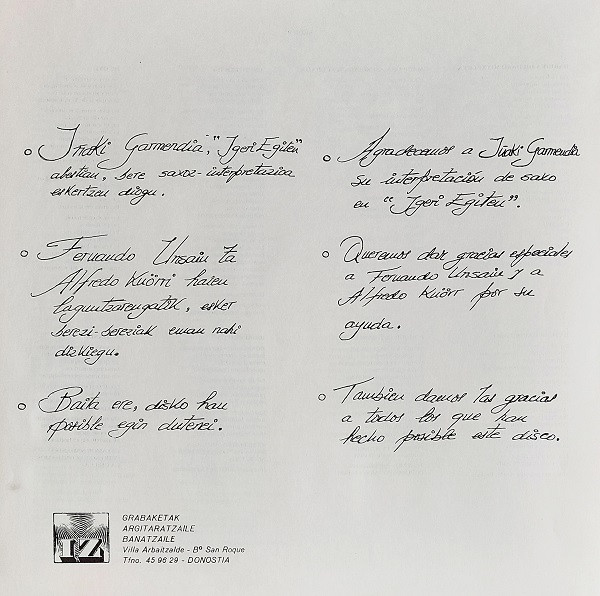 Iñaki Garmendia, "Igeri Egiten"
abestian, bere saxoz-interpretazioa
eskertzen diogu.
Fernando Unsain ta
Alfredo Knörri haien
laguntzarengatik, esker
berezi-bereziak eman nahi
dizkiegu.
Baita ere, disko hau
posible egin dutenei.
Agradecemos a Iñaki Garmendia
su interpretación de saxo
en "Igeri Egiten".
Queremos dar gracias especiales
a Fernando Unsain y a
Alfredo Knörr por su
ayuda.
Tambien damos las gracias
a todos los que han
hecho posible este disco.
IZ
GRABAKETAK
ARGITARATZAILE
BANATZAILE
Villa Arbaitzalde - Bº San Roque
Tfno. 45 96 29 - DONOSTIA